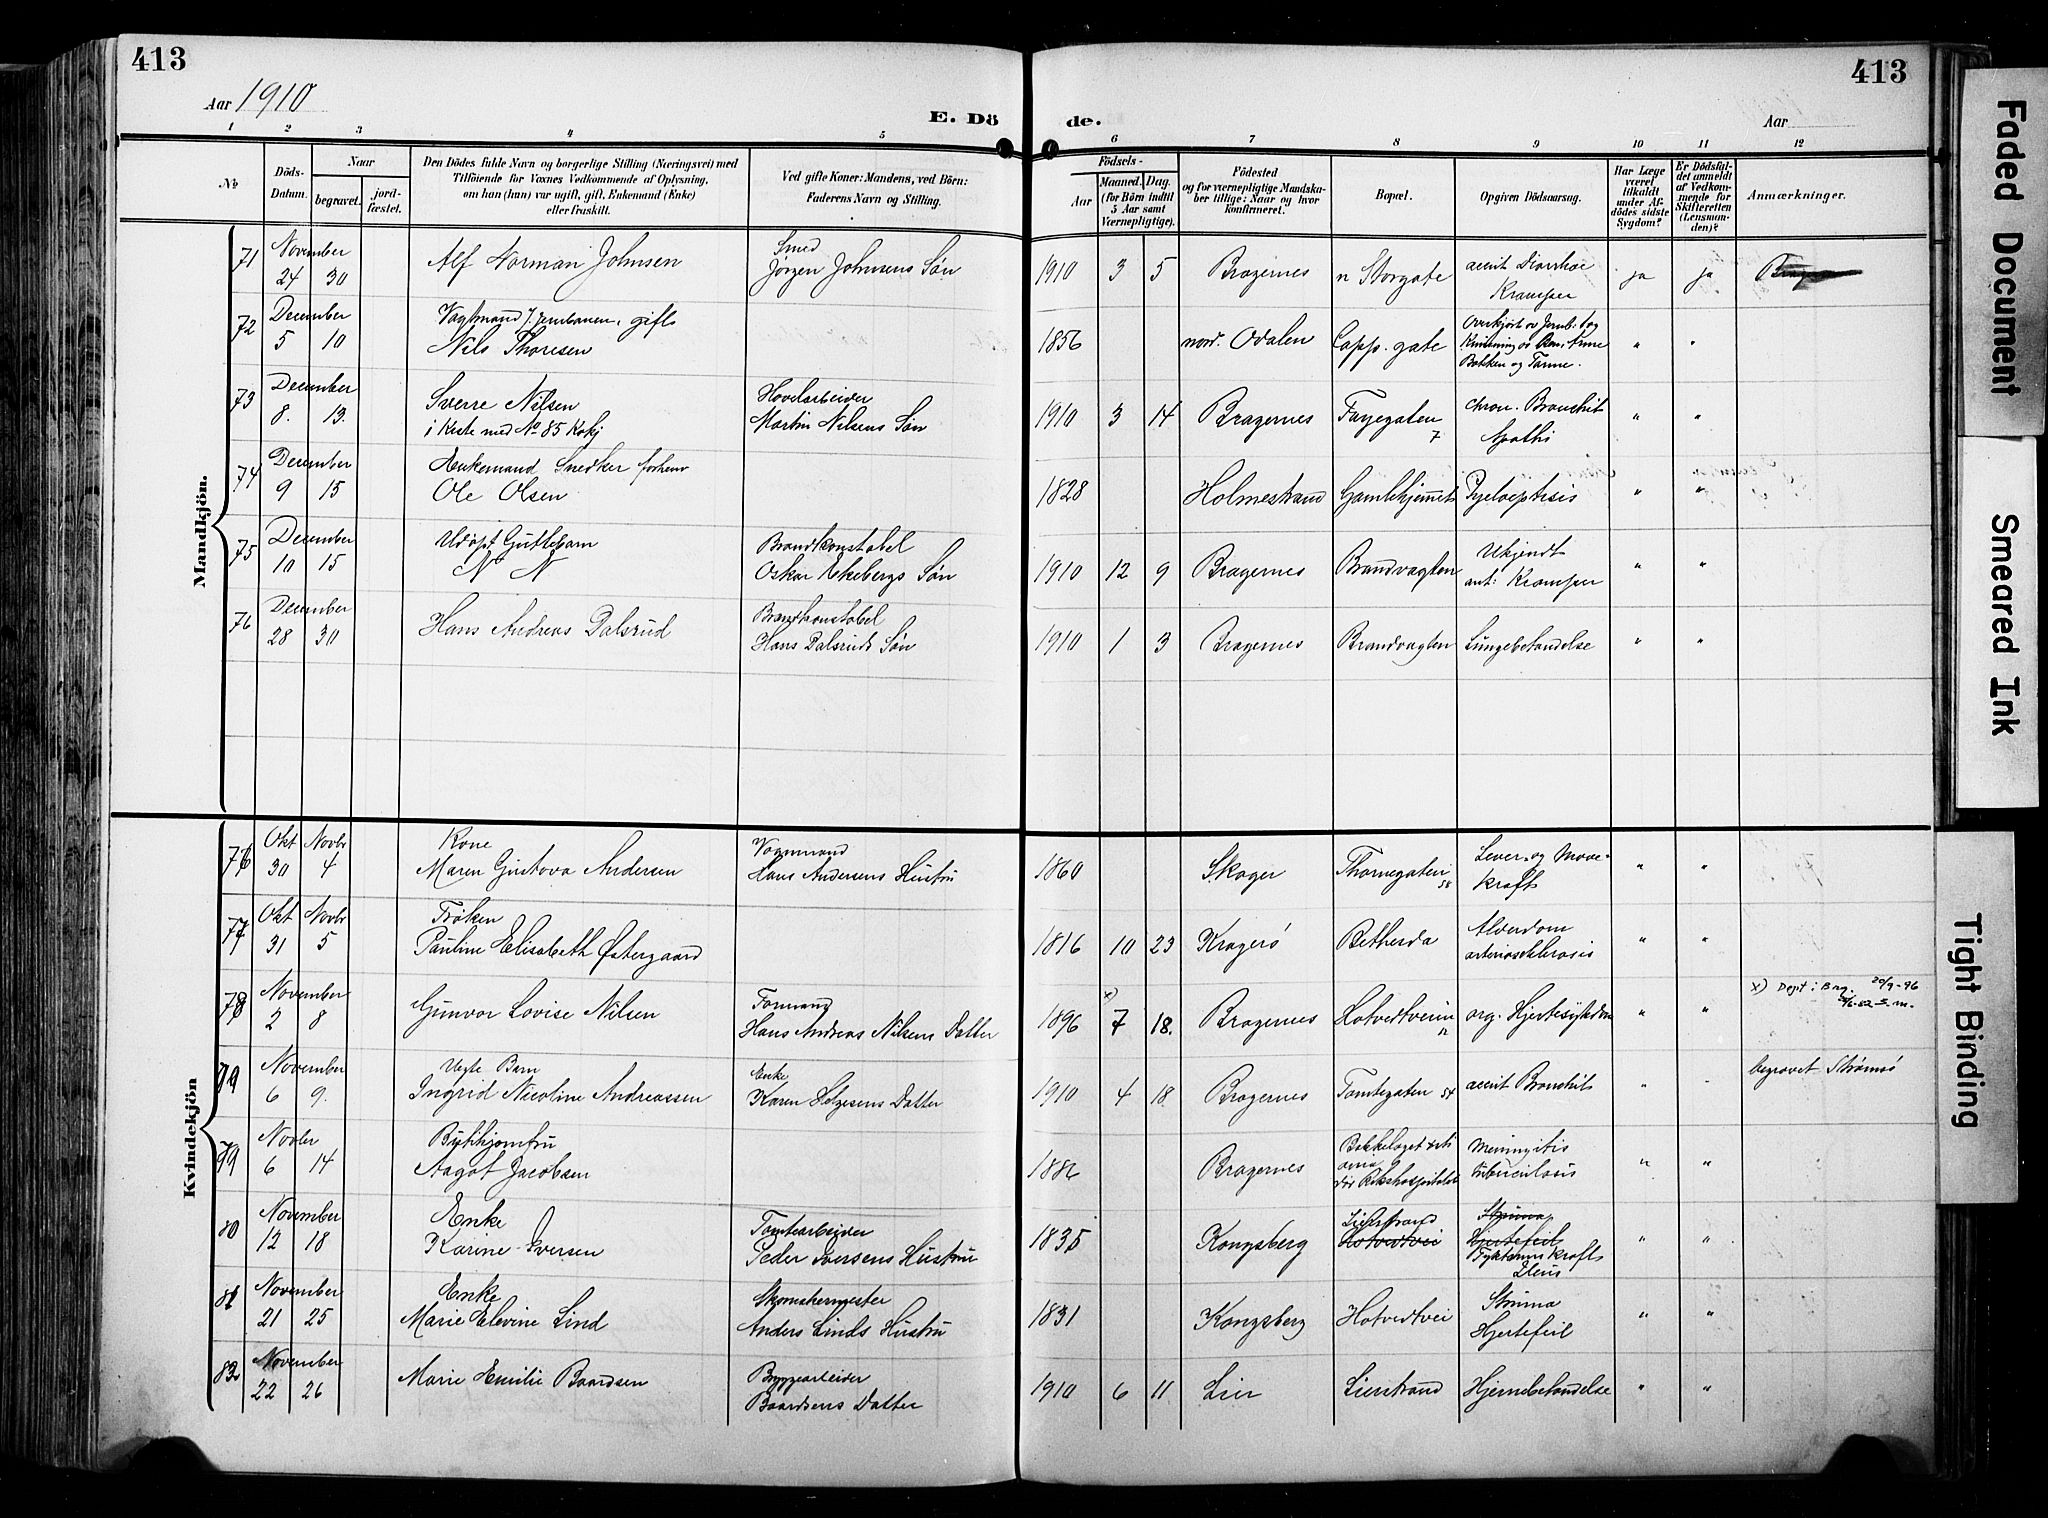 413
413
Aar 1910
E. Dö
de.
Aar
1 2 3 4 5 6 7 8 9 10 11 12
No
Döds-
Datum.
Naar
begravet.
jord-
fæstet.
Den Dödes fulde Navn og borgerlige Stilling (Næringsvei) med
Tilföiende for Voxnes Vedkommende af Oplysning,
om han (hun) var ugift, gift, Enkemand (Enke)
eller fraskilt.
Ved gifte Koner: Mandens, ved Börn:
Faderens Navn og Stilling.
Födsels-
Aar
Maaned.
Dag.
(for Börn indtil
5 Aar samt
Værnepligtige).
Födested
og for værnepligtige Mandska-
ber tillige: Naar og hvor
konfirmeret.
Bopæl.
Opgiven Dödsaarsag.
Har Læge
været
tilkaldt
under Af-
dödes sidste
Sygdom?
Er Dödsfal-
det anmeldt
af Vedkom-
mende for
Skifteretten
(Lensman-
den)?
Anmærkninger.
Mandkjön.
71 November 24 30 Alf Norman Johnsen Smed
Jørgen Johnsens Søn 1910 3 5 Bragernes n Storgate acut Diarrhoe
Kramper ja ja
72 December 5 10 Vagtmand v. Jernbanen, gift
Nils Thoresen 1856 nord. Odalen Capp. gate Overkjørt av Jernb. tog
Knusning av
Bækken og Tarme. " "
73 December 8. 13. Sverre Nilsen
i Kiste med No 85 Kvkj Hovelarbeider
Martin Nilsens Søn 1910 3 14 Bragernes Fayegaten
7 chron. Bronchit
Apathi " "
74 December 9 15 Enkemand Snedker forhenv
Ole Olsen 1828 Holmestrand Gamlehjemmet " "
75 December 10 15 Udøpt Guttebarn
N N Brandkonstabel
Oskar Ekebergs Søn 1910 12 9 Bragernes Brandvagten Ukjendt
ant: Kramper " "
76 December 28 30 Hans Andreas Dalsrud Brandkonstabel
Hans Dalsruds Søn 1910 1 3 Bragernes Brandvagten Lungebetændelse " "
Kvindekjön
76 Okt 30 Novbr 4 Kone
Maren Gustava Andersen Vognmand
Hans Andersens Hustru 1860 Skoger Thornegaten
58 Lever- og Mave-
kraft " "
77 Okt 31 Novbr 5 Frøken
Pauline Elisabeth Østergaard 1816 10 23 Kragerø Bethesda Alderdom
arteriosklerosis " "
78 November 2 8 Gunvor Lovise Nilsen Formand
Hans Andreas Nilsens Datter 1896 x) 7 18. Bragernes Hotvedtveien
12 org. Hjertesykdom " " x) Døpt i Brag. 20/9-96
79 November 6 9. Uegte Barn
Ingrid Nicoline Andreassen Enke
Karen Helgesens Datter 1910 4 18. Bragernes Tomtegaten 54 acut Bronchit " " begravet Strømsø
79 Novbr 6 14 Bytihjomfru
Aagot Jacobsen 1886 Bragernes Bakkelaget
død Rikshospitalet Meningitis
tuberculosis " "
80 November 12 18 Enke
Karine Iversen Tomtearbeider
Peder Iversens Hustru 1835 Kongsberg Lierstrand
Hotvedtvei Struma
Hjertefeil
Tyktarmskraft
Ileus " "
81 November 21 25 Enke
Marie Elevine Lind Skomakermester
Anders Linds Hustru 1831 Kongsberg Hotvedtvei Struma
Hjertefeil " "
82 November 22 26 Marie Emilie Baardsen Bryggearbeider
Baardsens Datter 1910 6 11 Lier Lierstrand Hjernebetændelse " "
Faded Document
Smeared Ink
Tight Binding